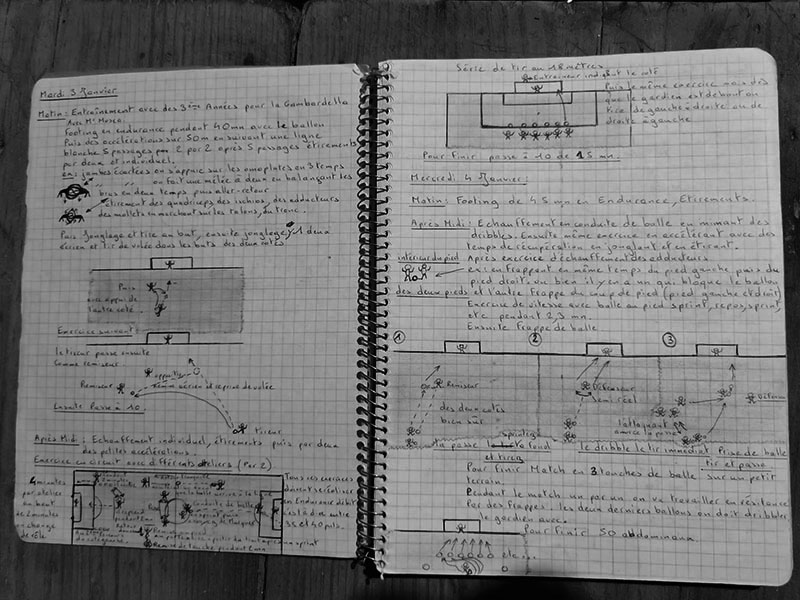 Mardi 3 Janvier
Matin: Entraînement avec des 3ème Années pour la Gambardella
Avec Mr
Footing en endurance pendant 40mn avec le ballon
Puis des accélérations sur 50m en suivant une ligne
blanche 5 passages par 2 par 2 après 5 passages étirements
par deux et individuel.
ex: jambes écartées on s'appuie sur les omoplates en 3 temps
on fait une mêlée à deux en balançant les
bras en deux temps puis aller-retour
étirement des quadriceps des ischios, des adducteurs
des mollets en marchant sur les talons, du tronc.
Puis Jonglage et tire au but, ensuite jonglage, à deux
écrien et Tir de volée dans les buts des deux cotés
Puis
avec appui de
l'autre coté.
Exercice suivant:
le tireur passe ensuite
comme remiseur
appuie
Remiseur
Remise aérien et reprise de volée
tireur
Ensuite Passe à 10.
Après Midi: Echauffement individuel, étirements puis par deux
des petites accélérations.
Exercice en circuit avec différents ateliers (Par 2)
4 minutes
par atelier
au bout
de 2 minutes
on change
de rôle.
Tous ces exercices
doivent se réaliser
en Endurance
c'est à dire entre
35 et 40 puls.
Série de tir au 18 mètres
Entraîneur indiquant le coté
Puis le même exercice mais dès
que le gardien est debout on
tire de gauche à droite ou de
droite à gauche
Pour finir passe à 10 de 15 mn.
Mercredi 4 Janvier:
Matin: Footing de 45 mn en Endurance, Etirements.
Après Midi: Echauffement en conduite de balle en mimant des
dribbles. Ensuite même exercice en accélérant avec des
temps de récupération en jonglant et en étirant.
intérieur du pied
Après exercice d'échauffement des adducteurs
ex: en frappant en même temps du pied gauche puis du
pied droit. ou bien il y en a un qui bloque le ballon
des deux pieds et l'autre frappe du coup de pied (pied gauche et droit)
Exercice de vitesse avec ballon au pied sprint, repos, sprint,
etc pendant 2,3 mn.
Ensuite Frappe de balle
1
2
3
Remiseur
des deux cotés
bien sur
Défenseur
semi réel
l'attaquant
amorce la passe
sprinter
la passe à fond
et tirer
le dribble le tir immédiat
Prise de balle
tir et passe
Pour finir Match en 3 touches de balle sur un petit
terrain.
Pendant le match un par un on va travailler en résistance
par des frappes. les deux derniers ballons on doit dribbler
le gardien avec.
Pour finir 50 abdominaux.
etc...